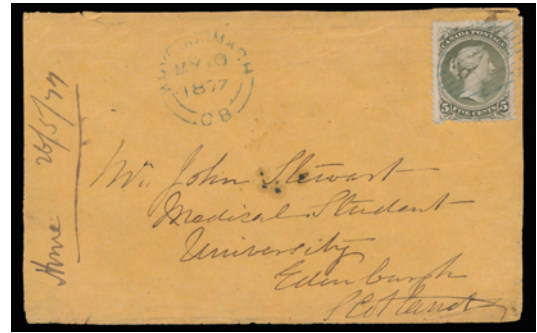 MY 10
1877
C B
CANADA POSTAGE
5 FIVE CENTS 5
Home 26/5/77
Mr. John Stewart
Medical Student
University
Edenburgh
Scotland